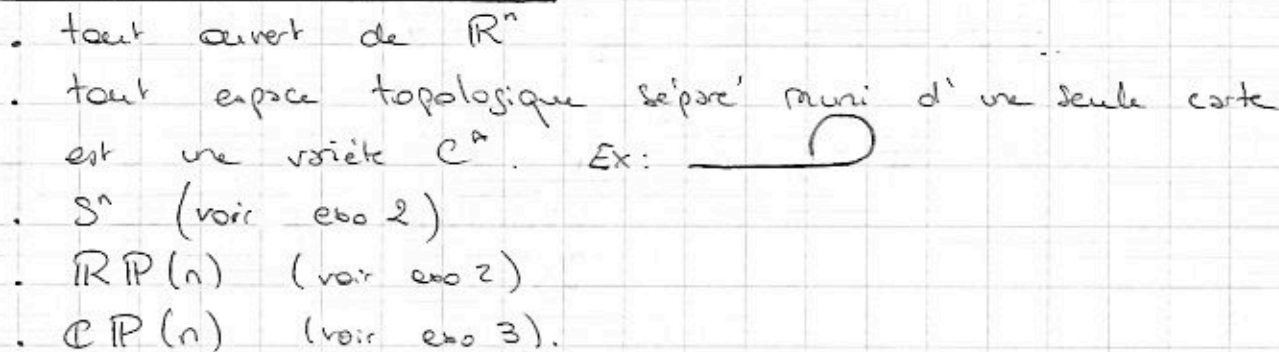 . tout ouvert de ℝⁿ
. tout espace topologique séparé muni d'une seule carte
est une variété C^∞. Ex:
. Sⁿ (voir exo 2)
. ℝℙ(n) (voir exo 2)
. ℂℙ(n) (voir exo 3).